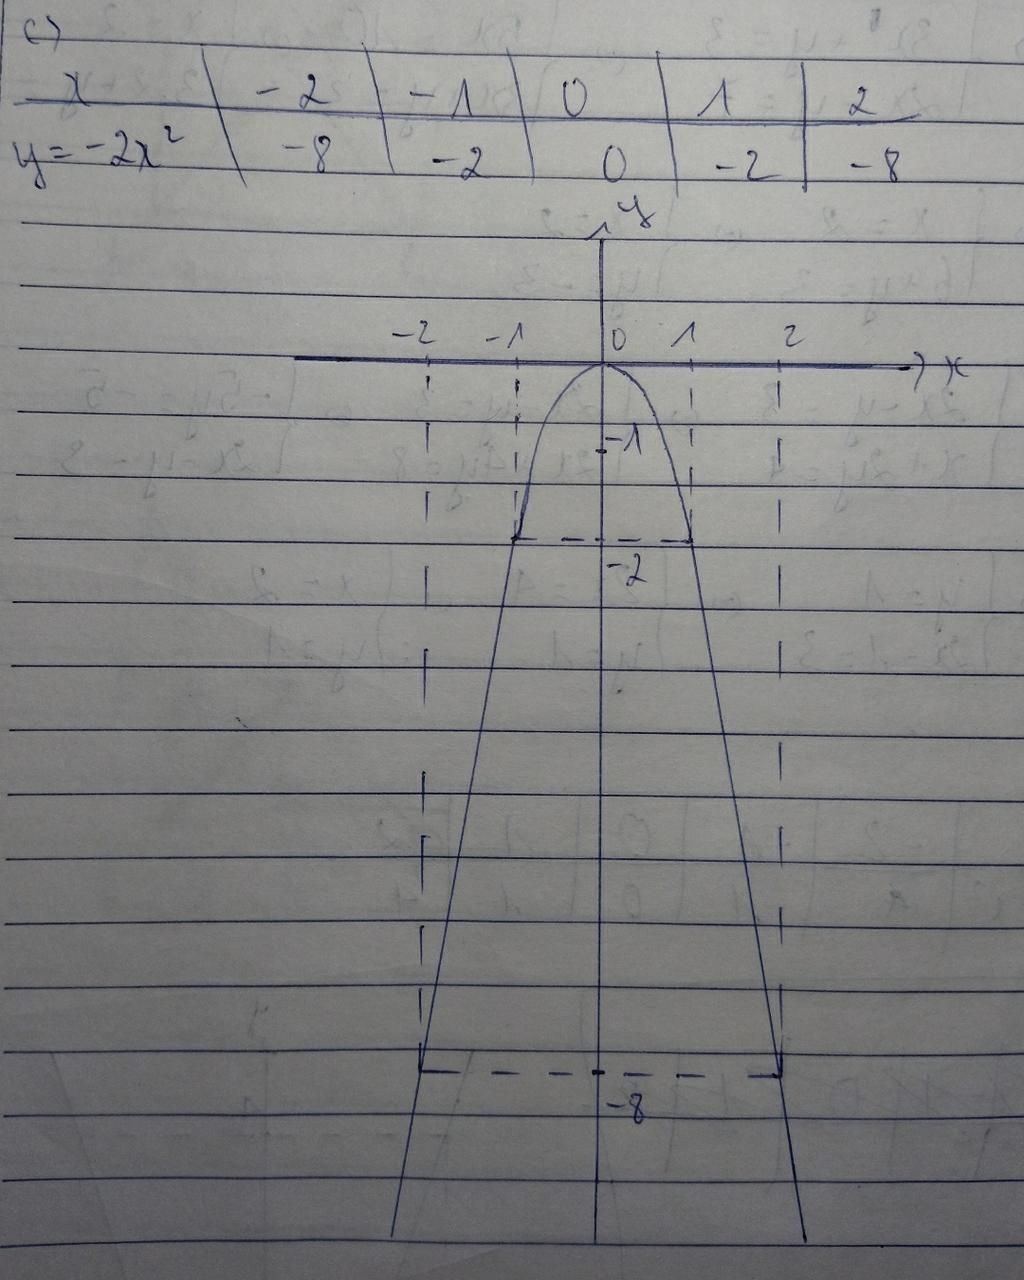 c)
x -2 -1 0 1 2
y = -2x² -8 -2 0 -2 -8
y
-2 -1 0 1 2
x
-1
-2
-8